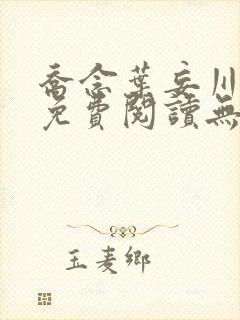 喬念葉妄川
免費閱讀無
玉麦鄉